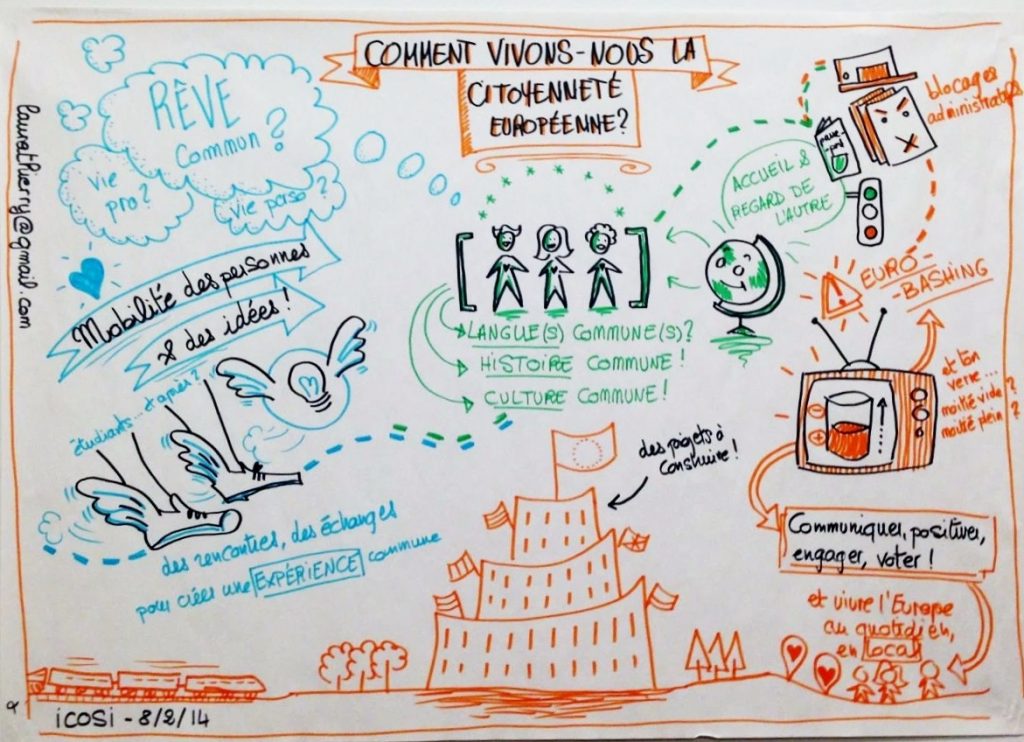 COMMENT VIVONS-NOUS LA
CITOYENNETÉ
EUROPÉENNE?
RÊVE
Commun?
vie
pro?
vie perso?
Mobilité des personnes
& des idées!
étudiants... et après?
des rencontres, des échanges
pour créer une EXPÉRIENCE commune
LANGUE(S) COMMUNE(S)?
HISTOIRE COMMUNE!
CULTURE COMMUNE!
ACCUEIL &
REGARD DE
L'AUTRE
blocages
administratifs
EURO-
-BASHING
et ton
verre...
moitié vide?
moitié plein?
des projets à
construire!
Communiquer, positiver,
engager, voter!
et vivre l'Europe
au quotidien,
en local
icosi - 8/2/14